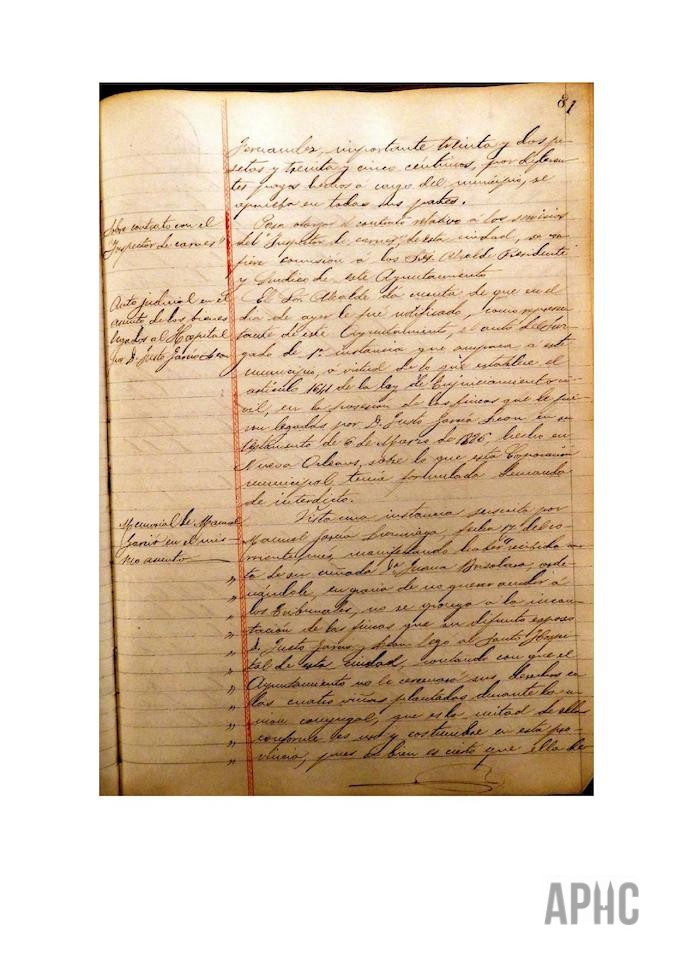 81
Fernandez, importante treinta y dos pe-
setas y treinta y cinco céntimos, por diferen-
tes pagos hechos a cargo del municipio, se
aprueba en todas sus partes.
Sobre contrato con el
Inspector de carnes
Para otorgar el contrato relativo á los servicios
del "Inspector de carnes" de esta ciudad, se
comisión á los Sres. Alcalde Presidente
y Síndico de este Ayuntamiento
Auto judicial en el
asunto de los bienes
legados al Hospital
por D. Justo García Lean
El Sor. Alcalde da cuenta de que en el
dia de ayer le fué notificado, como represen-
tante de este Ayuntamiento, el auto del Juz-
gado de 1ª instancia que ampara a este
municipio, á virtud de lo que establece el
artículo 1641 de la ley de Enjuiciamiento ci-
vil, en la posesion de las fincas que le fue-
ron legadas por D. Justo García Lean en su
testamento de 6 de Marzo de hecho en
Nueva Orleans, sobre lo que esta Corporación
municipal tenia formulada demanda
de interdicto.
Memorial de Manuel
García en el mis-
mo asunto
Vista una instancia suscrita por
Manuel García fecha 17 del co-
rriente mes, manifestando haber recibido car-
ta de su cuñada Dª Juana orde-
nándole, en gracia de no querer acudir á
los Tribunales, no se oponga á la incau-
tación de las fincas que su difunto esposo
D. Justo García y Lean legó al Santo Hospi-
tal de esta ciudad, contando con que el
Ayuntamiento no le cercenará sus derechos en
las cuatro viñas plantadas durante la u-
nion conyugal, que es la mitad de ellas
conforme es uso y costumbre en esta pro-
vincia, pues si bien es cierto que ella
APHC